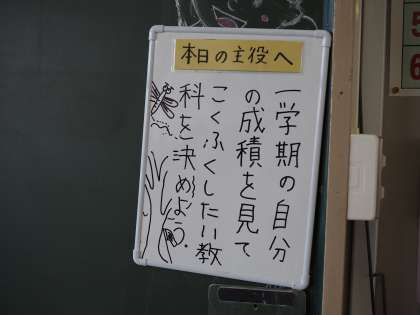 本日の主役へ
一学期の自分
の成積を見て
こくふくしたい教
科を決めよう。
5
6